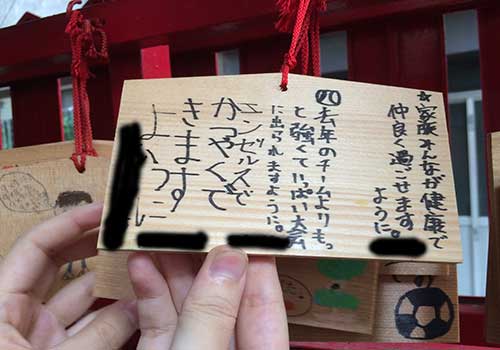 ☆家族みんなが健康で
仲良く過ごせます
ように
⑧去年のチームよりも。
と強くていっぱい大会
に出られますように。
エンゼルスで
かつやくで
きます
ように